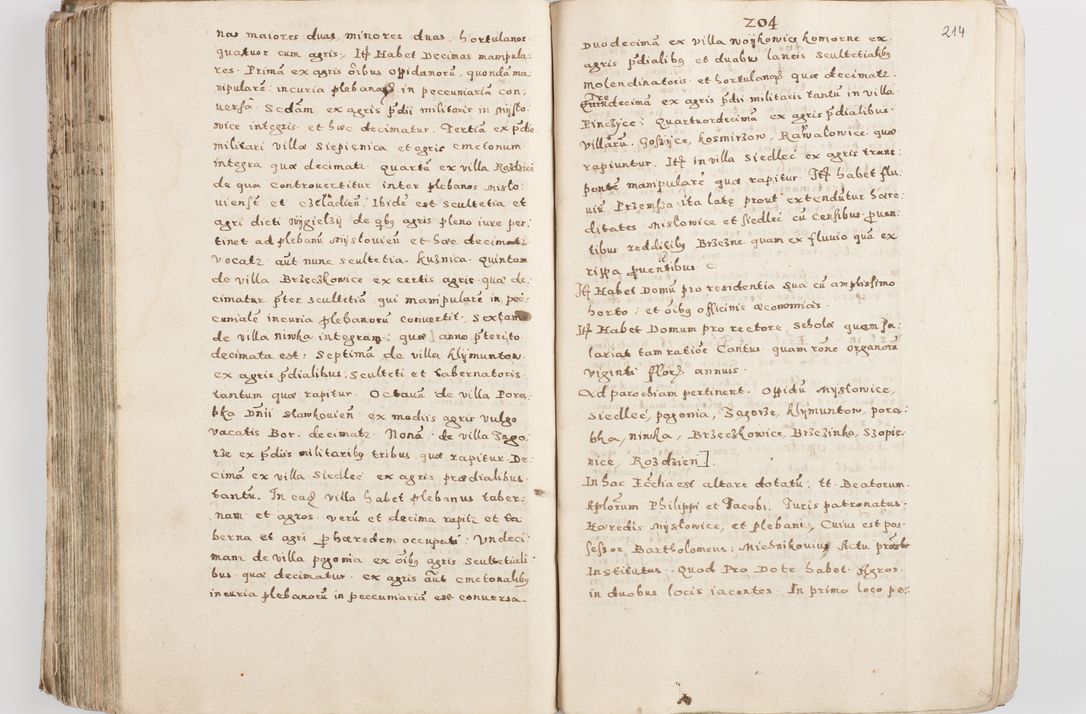 nas maiores duas, minores duas, hortulanos
quatuor cum agris. Itē Habet Decimas manipula:
res. Primā ex agris ōibus Oppidanorū, quondā ma
nipularē: incuria plebano in peccuniariā con:
uersā. Scdam ex agris p̄dii militaris in Mÿsło:
wice integris et hæc decimatur. Tertiā ex p̄dio
militari villæ Siepicnica et agris cmetonum
integra quæ decimatr. quartā ex villa Rozdzień
de qua controuertitur inter plebanos Misło:
uiensē et czeladiēn. Ibidē est scultetia et
agri dicti wÿgielzÿ de qby agris pleno iure per:
tinet ad plebanū Mÿsłouiēn et hæc decimatr
vocatr aūt nunc scultetia kuznica. Quintam
de villa Brzeczkowice ex certis agris quæ de:
cimatur p̄ter scultetiā qui manipularē in pec:
cunialē incuria plebanorū conuertit. Sextam
de villa ninka integram: quæ anno p̄terito
decimata est: Septimā de villa klÿmuntow
ex agris p̄dialibus. Sculteti et tabernatoris
tantum quæ rapitur. Octauā de villa Pora
bka Dn̄ii Sławkouiēn ex mediis agris vulgo
vacatis Bor. decimatr Nonā de villa Zago:
rze ex p̄diis militariby tribus quæ rapitur. De:
cimā ex villa Siedlec ex agris prædialibus
tantū. In eadē villa habet plebanus taber:
nam et agros verū et decima rapitr et ta
berna et agri p hæredem occupati: Undeci:
mam de villa pogonia ex ōiby agris scultetiali:
bus quæ decimatur. ex agris aūt cmetonaliby
incuria plebanorū in peccumariā est conuersa.
204
214
Duodecimā ex villa woÿkowice komorne ex
agris p̄dialiby et duaby laneis scultetialiby
molendinatoris et hortulanor quæ decimatr:
Tre
Quindecimā ex agris p̄dii militaris tantū in villa
Pinczÿce: Quartuordecimā ex agris p̄dialibus
villarū, Gošÿce, kosmirzow, Rawałowice quæ
rapiuntur. Itē in villa Siedlec ex agris trans:
pontē manipularē quæ rapitur. Itē habet flu:
uiū Przemsza ita latē prout extendūtur hære:
ditates Misłowice et Siedlec cū censibus puen:
tibus redditiby Brzezne quam ex fluuio quā ex
rippa puentibus.
Itē Habet Domū pro residentia sua cū amplissimo
horto: et oiby officinis œconomiæ.
Itē Habet Domum pro rectore Scholæ quem sa:
lariat tam ratiōe Cantus quam rōne organorū
viginti flor annuis.
Ad parochiam pertinent. Oppidū Mysłowice,
Siedlec, pogonia, Zagorze, klÿmuntow, pora:
bka, ninka, Brzeczkowice, Brzezinka, Szopie:
nice, Rozdzien].
In hac Ecclia est altare dotatū: tt. Beatorum
Aplorum Philippi et Jacobi. Juris patronatus
Hæredis Mysłowice, et plebani, Cuius est pos:
sessor Bartholomeus: Miechnikouius Actu præsbr
Institutus. Quod Pro Dote habet Agros
in duobus locis iacentes. In primo loco pe: